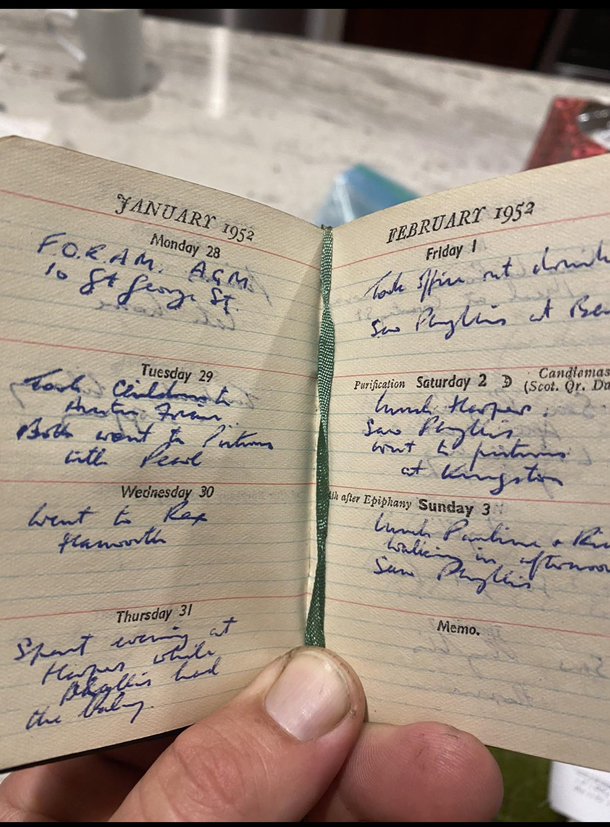 JANUARY 1952
Monday 28
F.O.R.A.M. A.G.M.
10 St George St
Tuesday 29
Took Children to
Both went to Pictures
with Pearl
Wednesday 30
Went to Rex
Hanworth
Thursday 31
Spent evening at
Harpers while
Phyllis had
the baby.
FEBRUARY 1952
Friday 1
Took office out
Saw Phyllis at
Purification Saturday 2 Candlemas
(Scot. Qr. Da
Lunch Harpers.
Saw Phyllis
went to pictures
at Kingston
4th after Epiphany Sunday 3
Lunch Pauline +
walking in afternoon
Saw Phyllis
Memo.